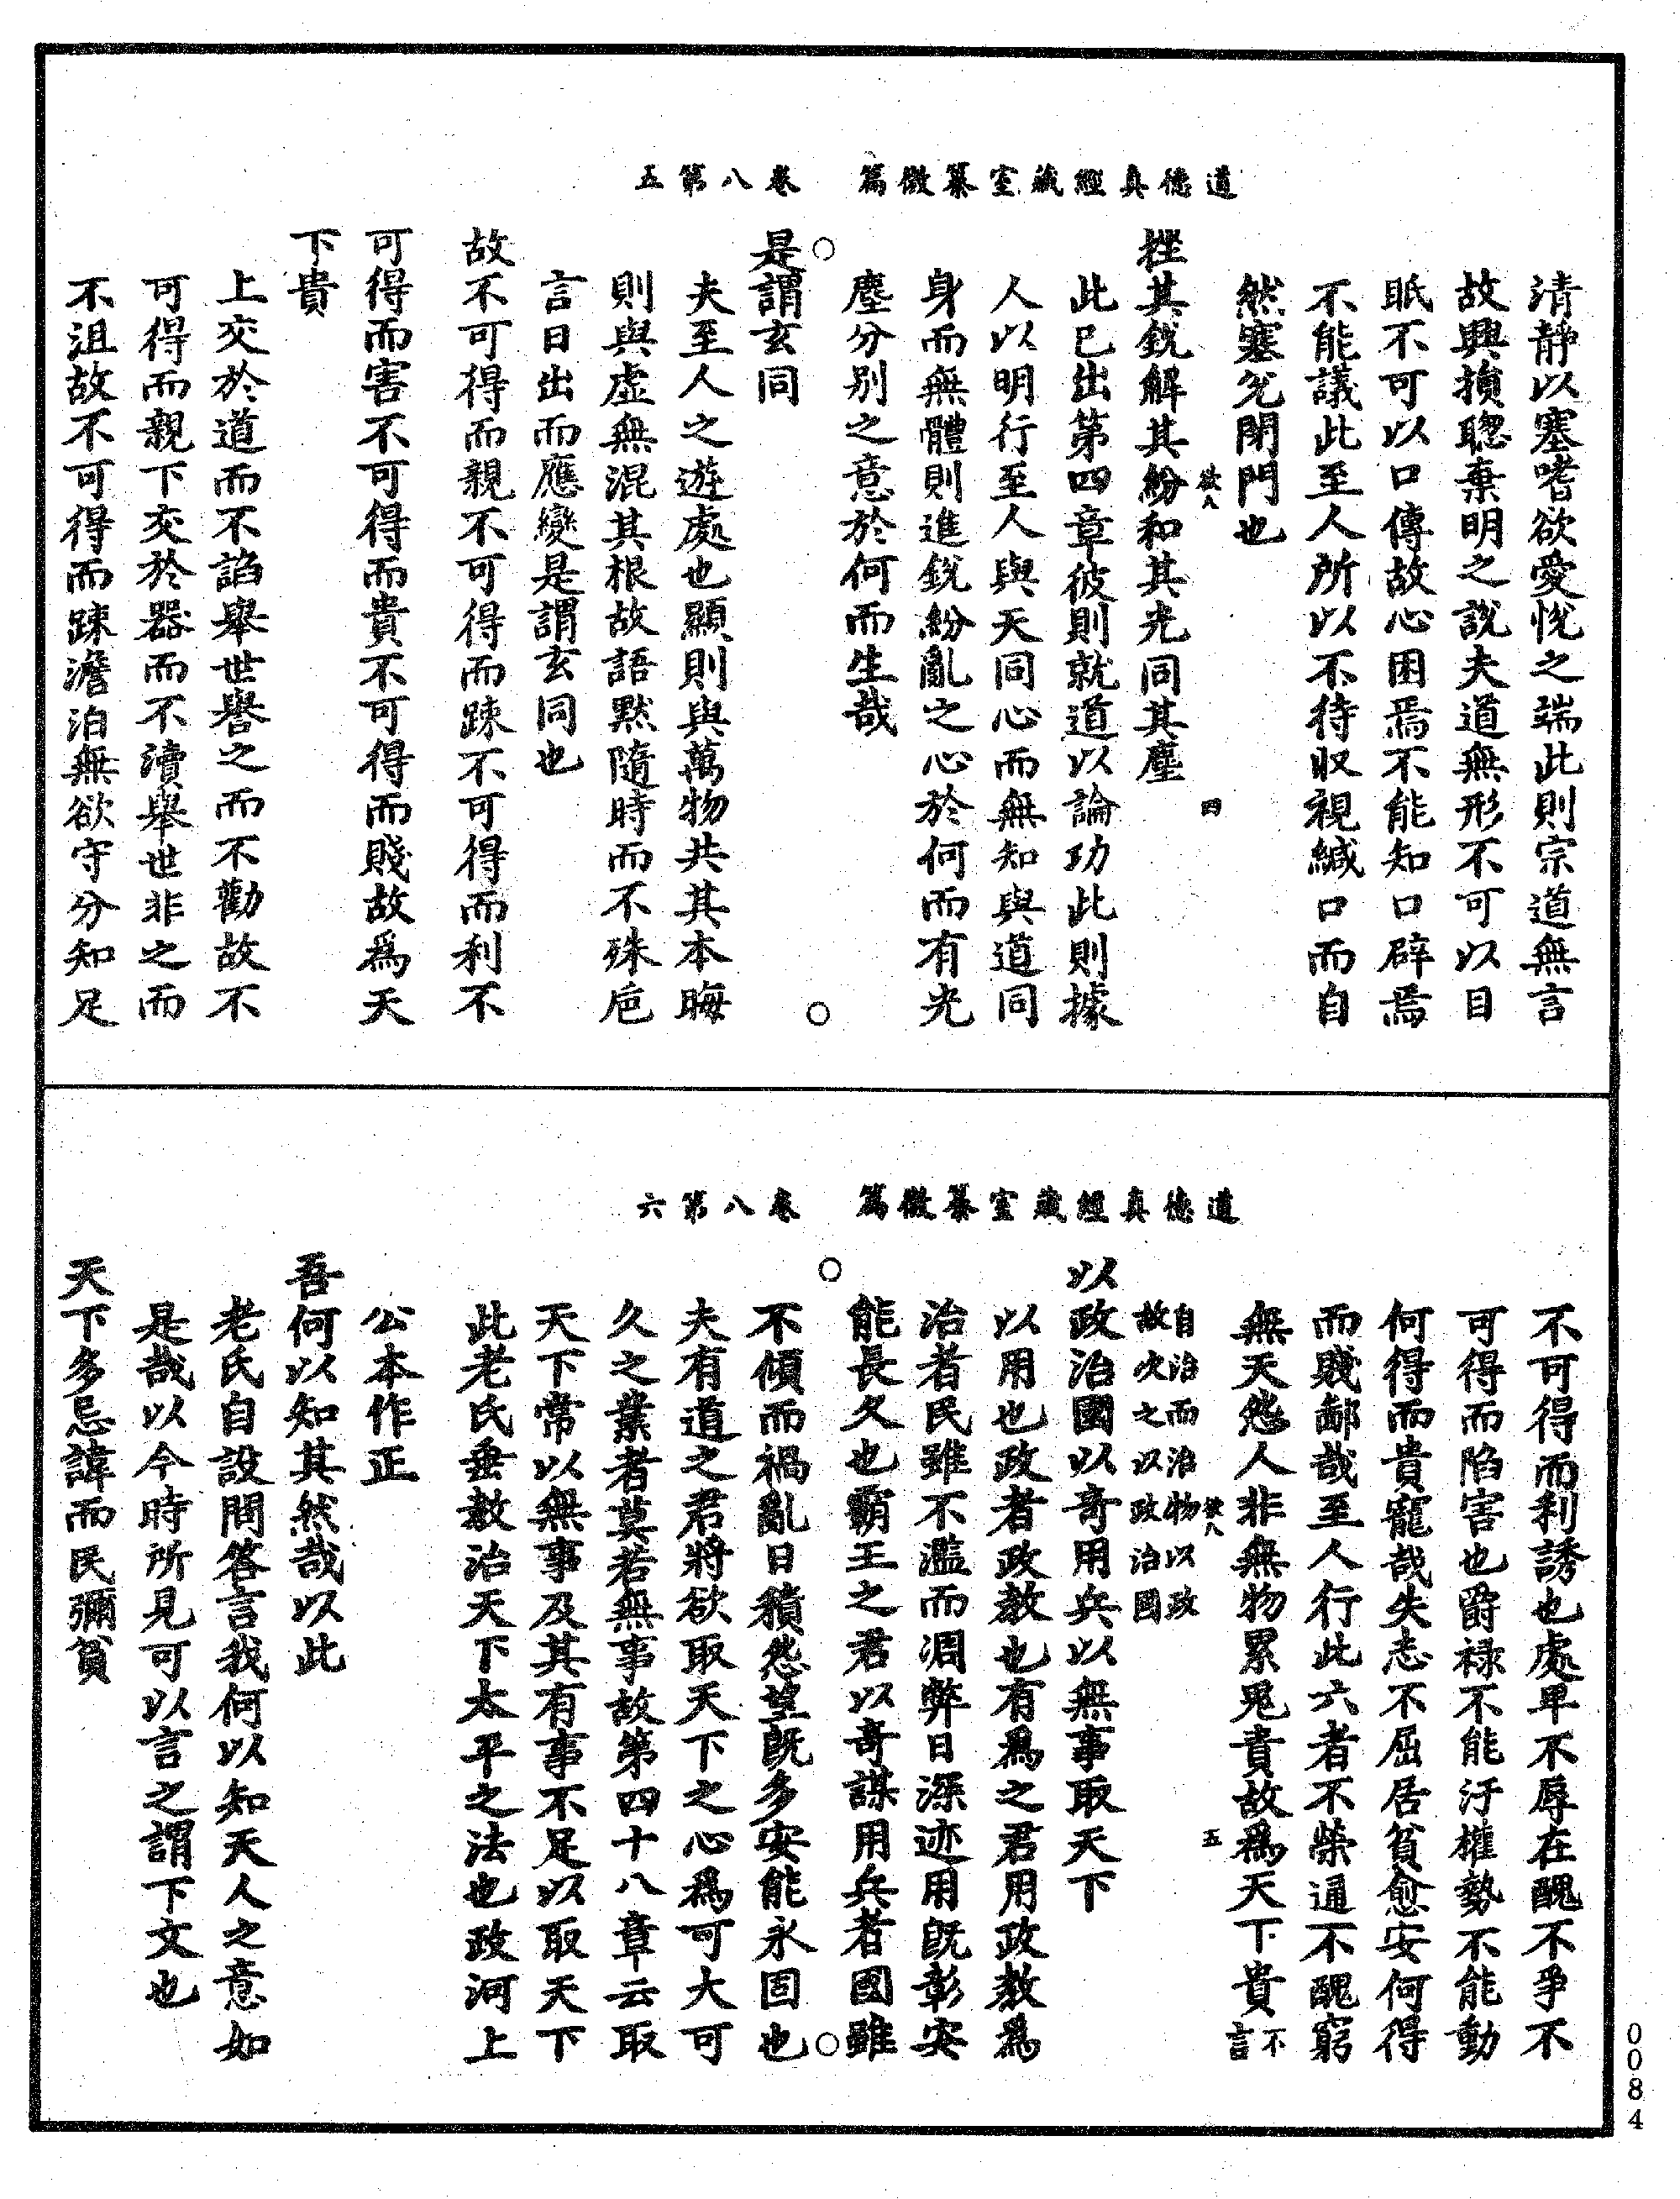 道德真經藏室纂微篇　卷八第五
清靜以塞嗜欲愛悅之端此則宗道無言
故興損聰棄明之說夫道無形不可以目
眡不可以口傳故心困焉不能知口辟焉
不能議此至人所以不待收視緘口而自
然塞兊閉門也
欲八　四
挫其銳解其紛和其光同其塵
此已出第四章彼則就道以論功此則據
人以明行至人與天同心而無知與道同
身而無體則進銳紛亂之心於何而有光
塵分别之意於何而生哉
是謂玄同
夫至人之遊處也顯則與萬物共其本晦
則與虛無混其根故語默隨時而不殊巵
言日出而應變是謂玄同也
故不可得而親不可得而踈不可得而利不
可得而害不可得而貴不可得而賤故爲天
下貴
上交於道而不諂舉世譽之而不勸故不
可得而親下交於器而不瀆舉世非之而
不沮故不可得而踈澹泊無欲守分知足
道德真經藏室纂微篇　卷八第六
不可得而利誘也處卑不辱在醜不爭不
可得而陷害也爵禄不能汙權勢不能動
何得而貴寵哉失志不屈居貧愈安何得
而賤鄙哉至人行此六者不榮通不醜窮
無天怨人非無物累鬼責故爲天下貴不言
欲八　五
自治而治物以政
故次之以政治國
以政治國以奇用兵以無事取天下
以用也政者政教也有爲之君用政教爲
治者民雖不濫而凋弊日深迹用旣彰安
能長久也霸王之君以奇謀用兵者國雖
不傾而禍亂日積怨望旣多安能永固也
夫有道之君將欲取天下之心爲可大可
久之業者莫若無事故第四十八章云取
天下常以無事及其有事不足以取天下
此老氏垂教治天下太平之法也政河上
公本作正
吾何以知其然哉以此
老氏自設問答言我何以知天人之意如
是哉以今時所見可以言之謂下文也
天下多忌諱而民彌貧
0084